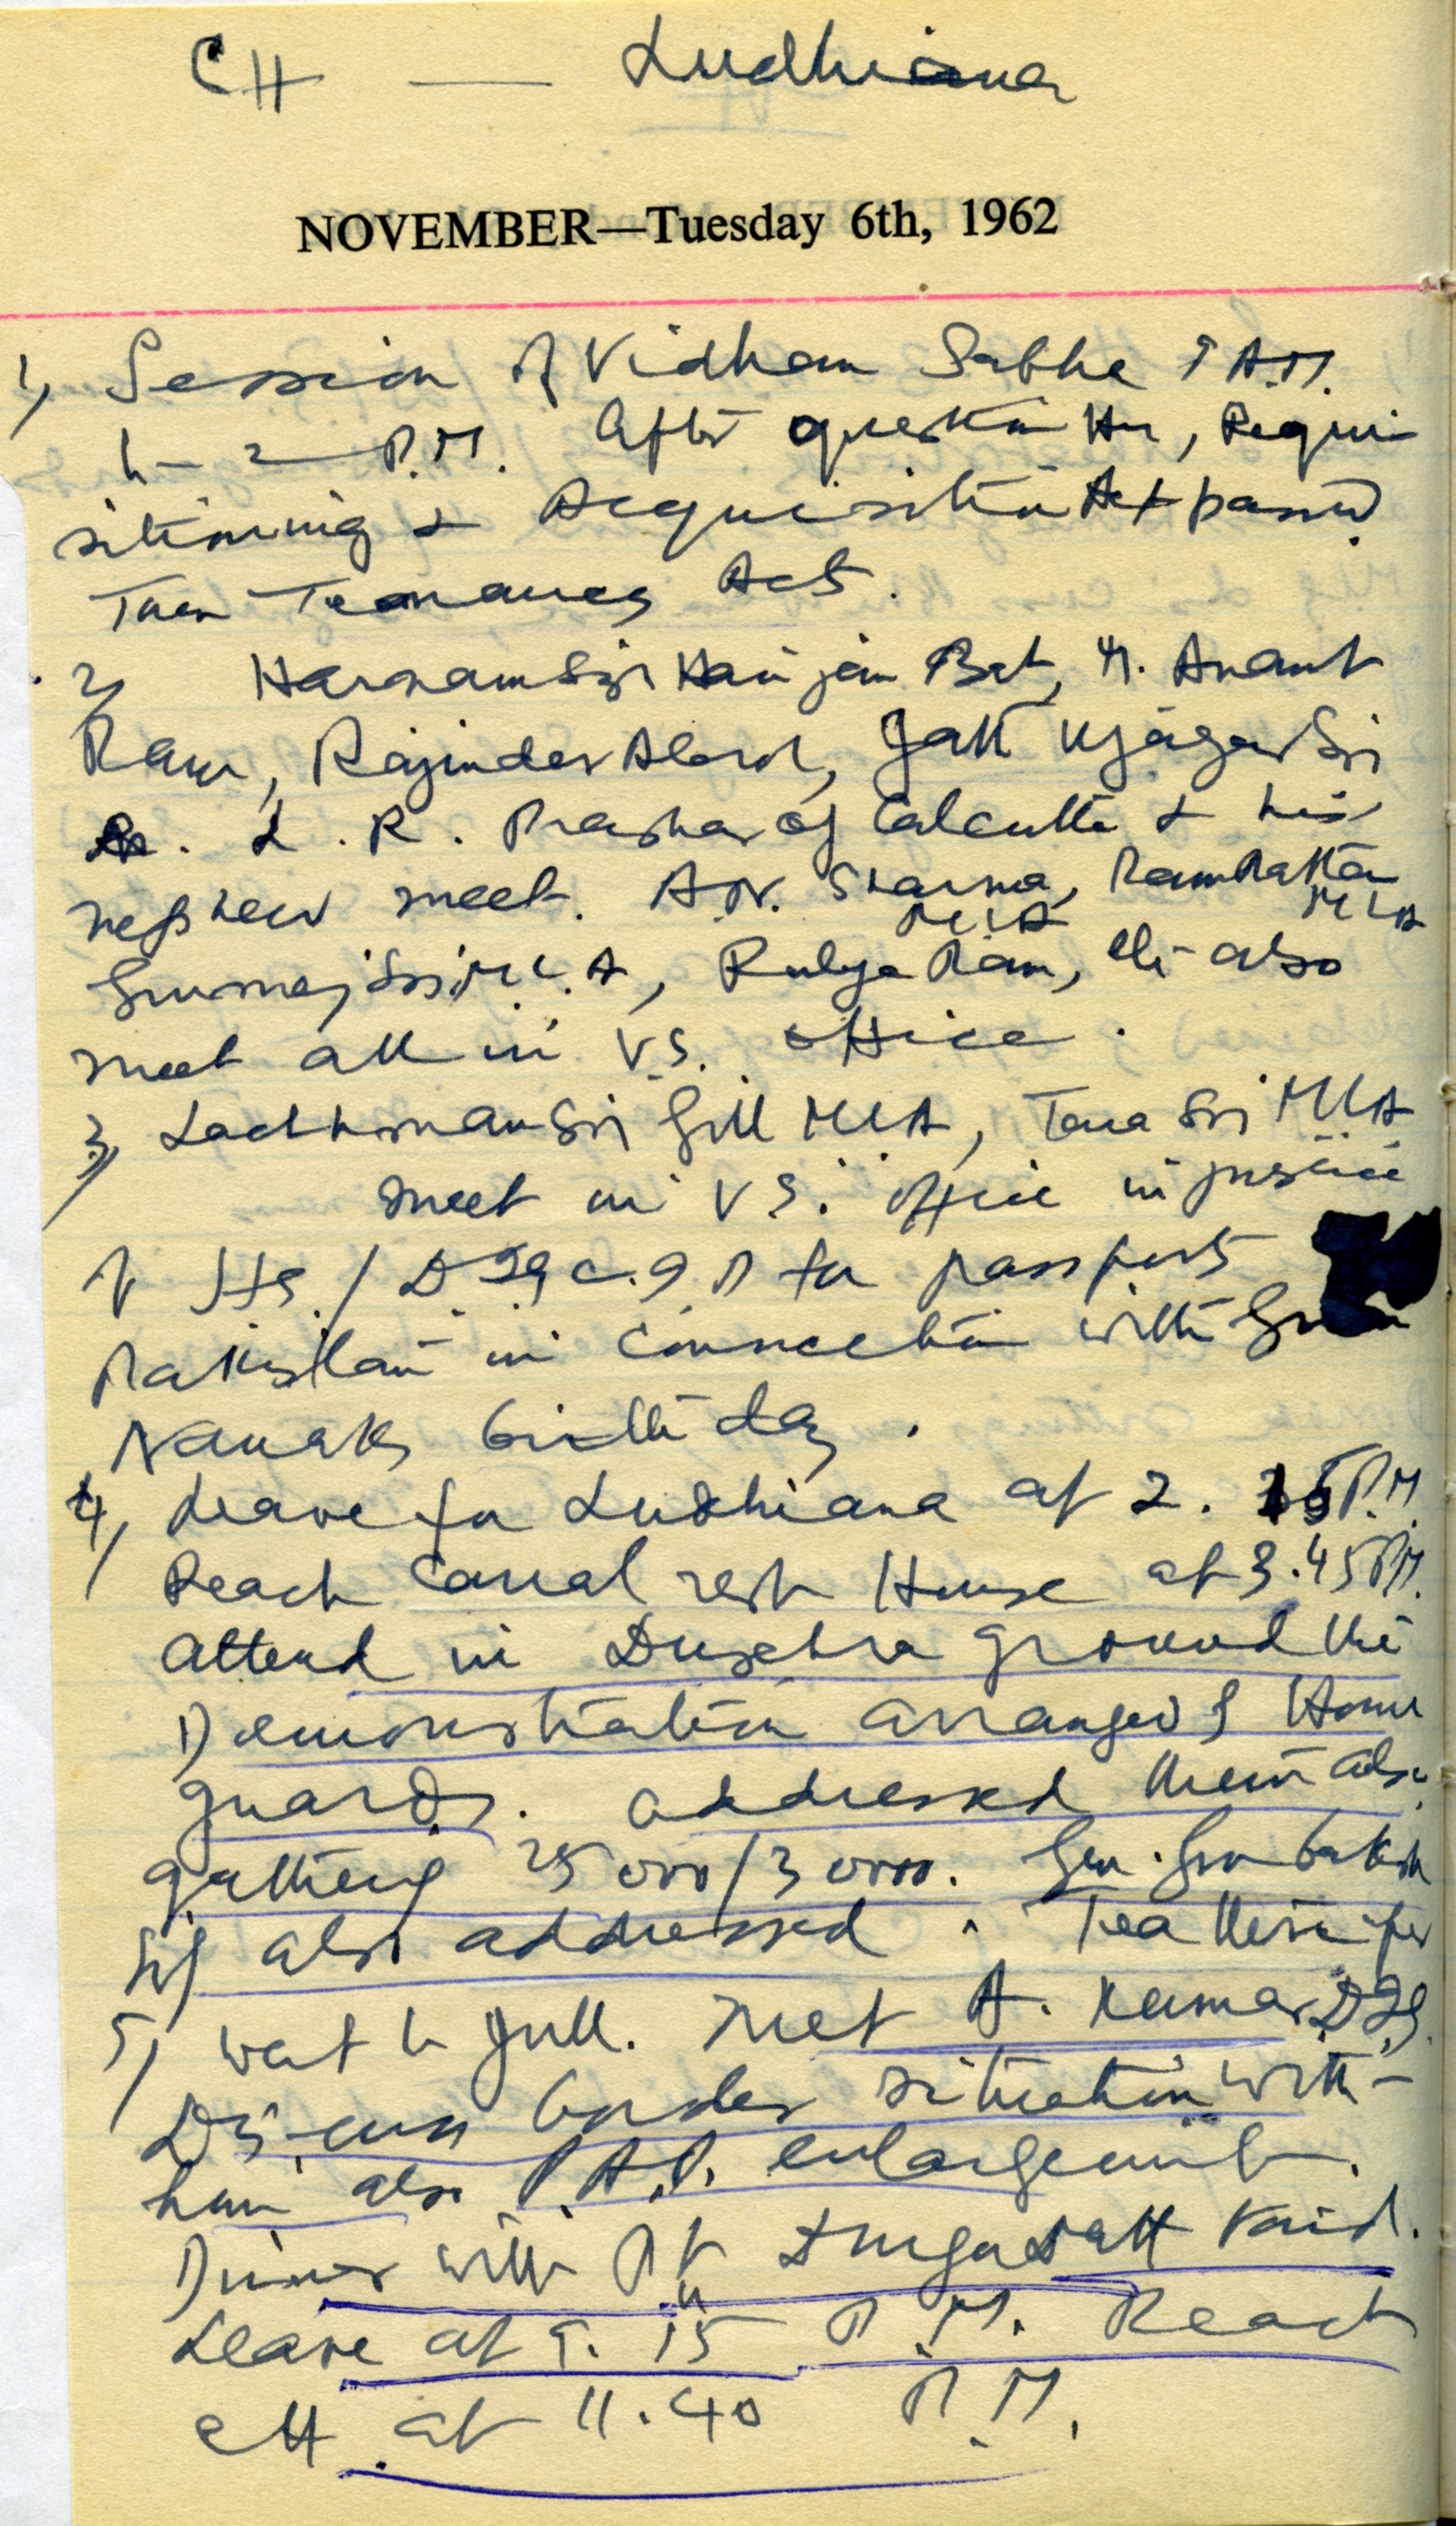 CH — Ludhiana
NOVEMBER—Tuesday 6th, 1962
1) Session of Vidhan Sabha 9 A.M.
to 2 P.M. After question Hr, Requi-
sitioning & Acquisition Act passed.
Then Tenancy Act.
2) Harnam Singh Harijan Bat, M. Anant
Ram, Rajinder, Jatt Ujagar Sin
L. R. Prashar of Calcutta & his
nephew meet. A.N. Sharma MLA, Ram Rattan MLA
Gurmej Sin M.L.A, Rulya Ram, etc also
meet all in V.S. office.
3) Lachhman Sin Gill MLA, Tara Sin MLA
meet in V.S. office in presence
of HS./DIG C.I.D for passports
Pakistan in connection with Guru
Nanaks birth day.
4) Leave for Ludhiana at 2. P.M.
Reach Canal rest House at 3.45 PM.
attend in Dusehra ground the
Demonstration arranged by Home
guards. addressed them also.
gathering 25000/30000. Gen. Gurbaksh
Sin also addressed. Tea there
5) went to Jull. Met A. Kumar DIG.
Discuss border situation with
him also P.A.P. enlargement.
Dinner with Pt Durga Datt Vaid.
Leave at 9.15 P.M. Reach
CH at 11.40 P.M.